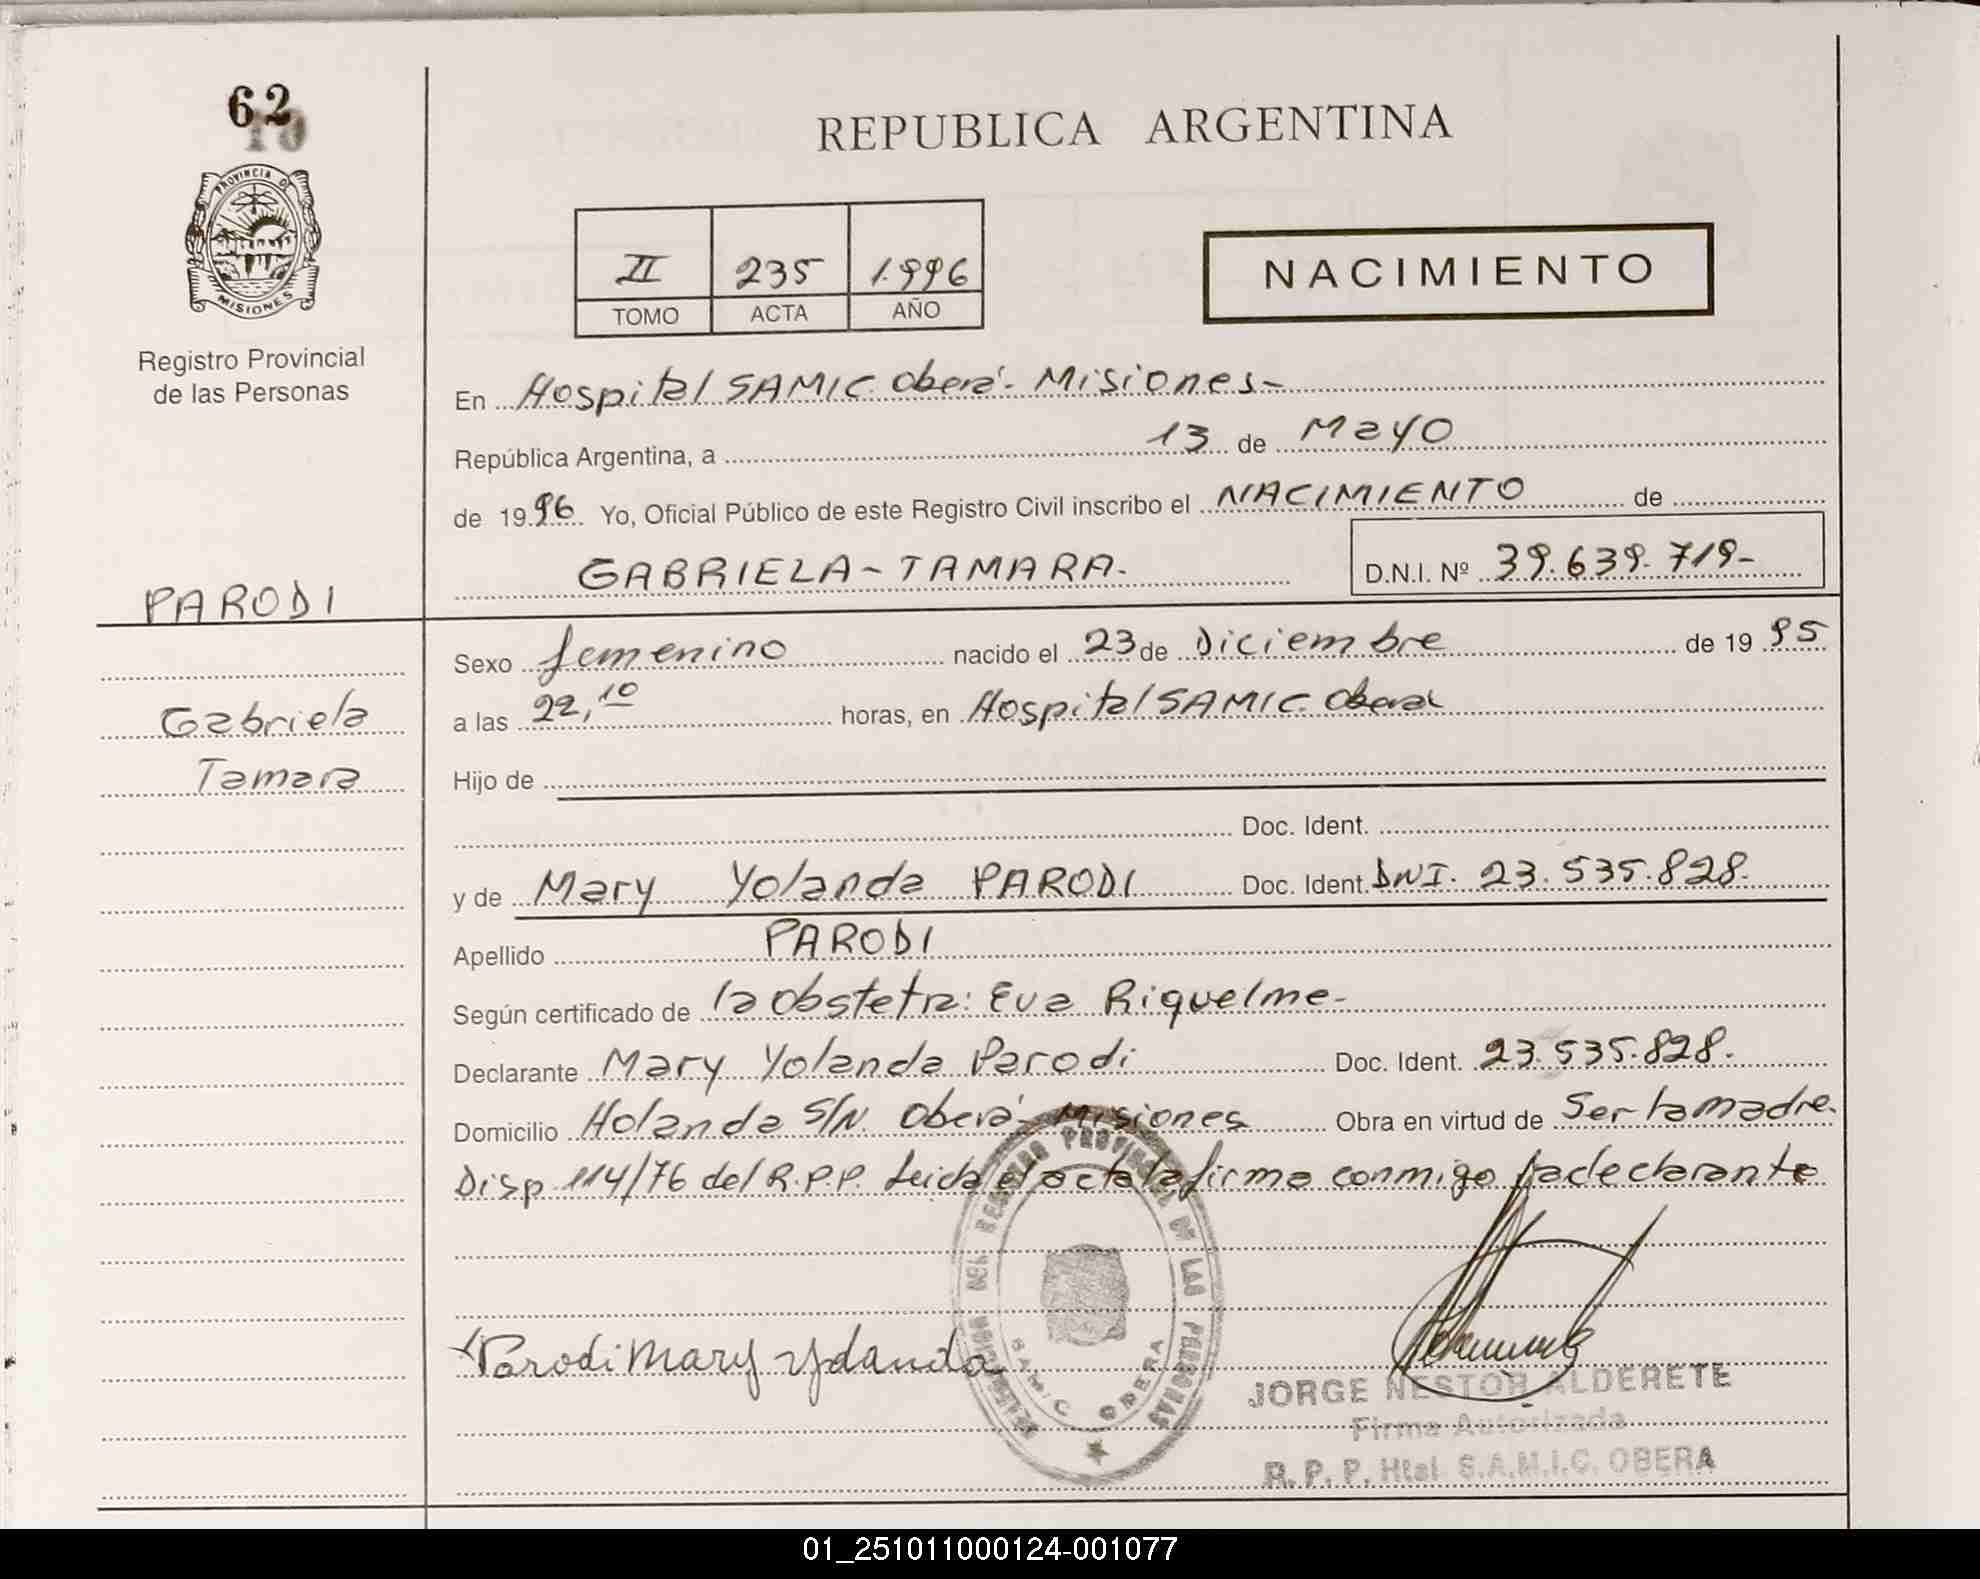 62
10
PROVINCIA DE
MISIONES
Registro Provincial
de las Personas
REPUBLICA ARGENTINA
II 235 1.996
TOMO ACTA AÑO
NACIMIENTO
En Hospital SAMIC. Oberá - Misiones-
República Argentina, a 13 de Mayo
de 1996 Yo, Oficial Público de este Registro Civil inscribo el NACIMIENTO de
GABRIELA - TAMARA. D.N.I. Nº 39.639.719-
PARODI
Gabriela
Tamara
Sexo femenino nacido el 23 de Diciembre de 1995
a las 22,10 horas, en Hospital SAMIC. Oberá
Hijo de
Doc. Ident.
y de Mary Yolanda PARODI Doc. Ident. DNI. 23.535.828.
Apellido PARODI
Según certificado de la Obstetra: Eva Riquelme-
Declarante Mary Yolanda Parodi Doc. Ident. 23.535.828.
Domicilio Holanda S/N Oberá - Misiones Obra en virtud de Ser la madre.
Disp 114/76 del R.P.P. Leida el acta la firma conmigo la declarante
DELEGACION DEL REGISTRO PROVINCIAL DE LAS PERSONAS
SAMIC OBERA
Parodi Mary Yolanda
JORGE NESTOR ALDERETE
Firma Autorizada
R. P. P. Htal. S.A.M.I.C. OBERA
01_251011000124-001077